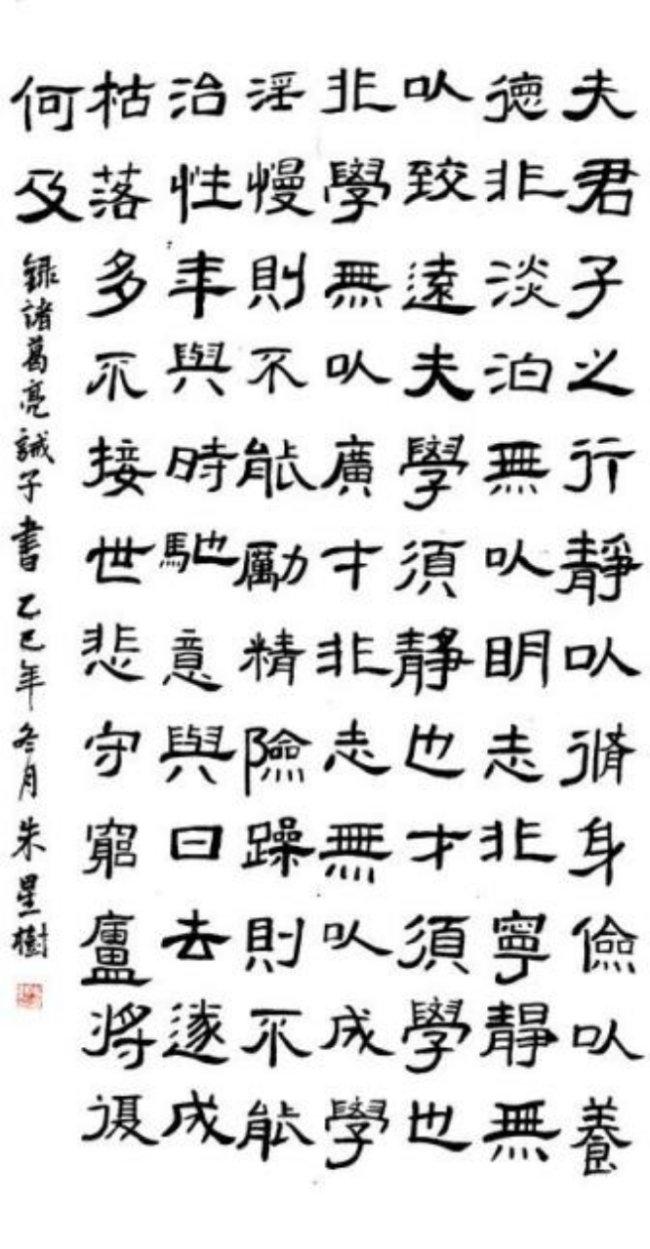 夫君子之行靜以脩身儉以養
德非淡泊無以明志非寧靜無
以致遠夫學須靜也才須學也
非學無以廣才非志無以成學
淫慢則不能勵精險躁則不能
治性年與時馳意與日去遂成
枯落多不接世悲守窮廬將復
何及
錄諸葛亮誡子書 乙巳年冬月 朱星樹